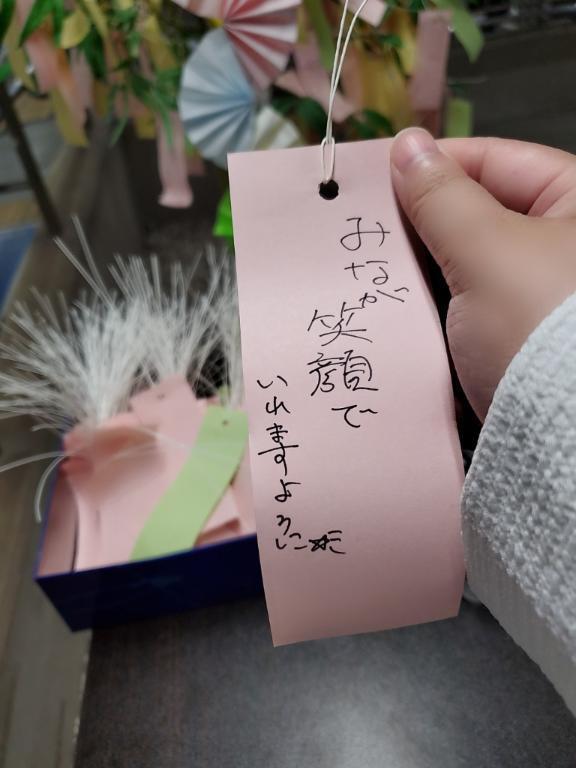 みなが笑顔で
いれますように☆